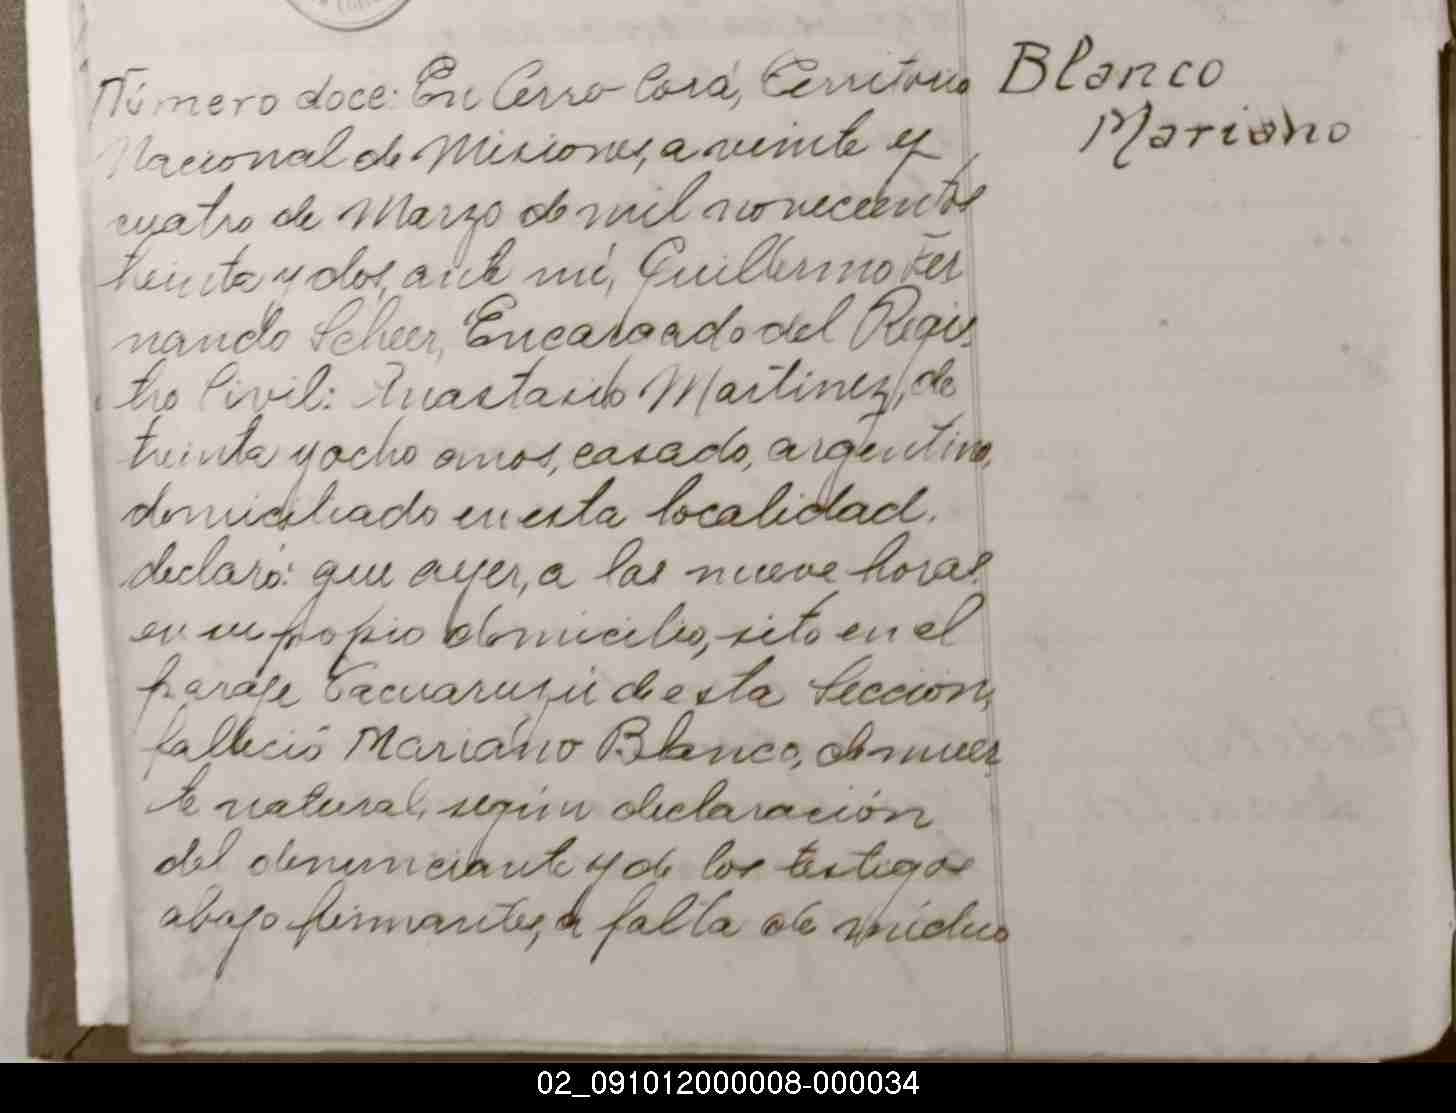 Número doce: En Cerro Corá, Territorio
Nacional de Misiones, a veinte y
cuatro de Marzo de mil novecientos
treinta y dos, ante mí, Guillermo Fer
nando Scheer, Encargado del Regis
tro Civil: Anastasio Martinez, de
treinta y ocho anos, casado, argentino,
domiciliado en esta localidad.
declaró: que ayer, a las nueve horas
en su propio domicilio, sito en el
paraje Tacuaruzú de esta Sección,
falleció Mariano Blanco, de muer
te natural, según declaración
del denunciante y de los testigos
abajo firmantes, a falta de médico
Blanco
Mariano
02_091012000008-000034